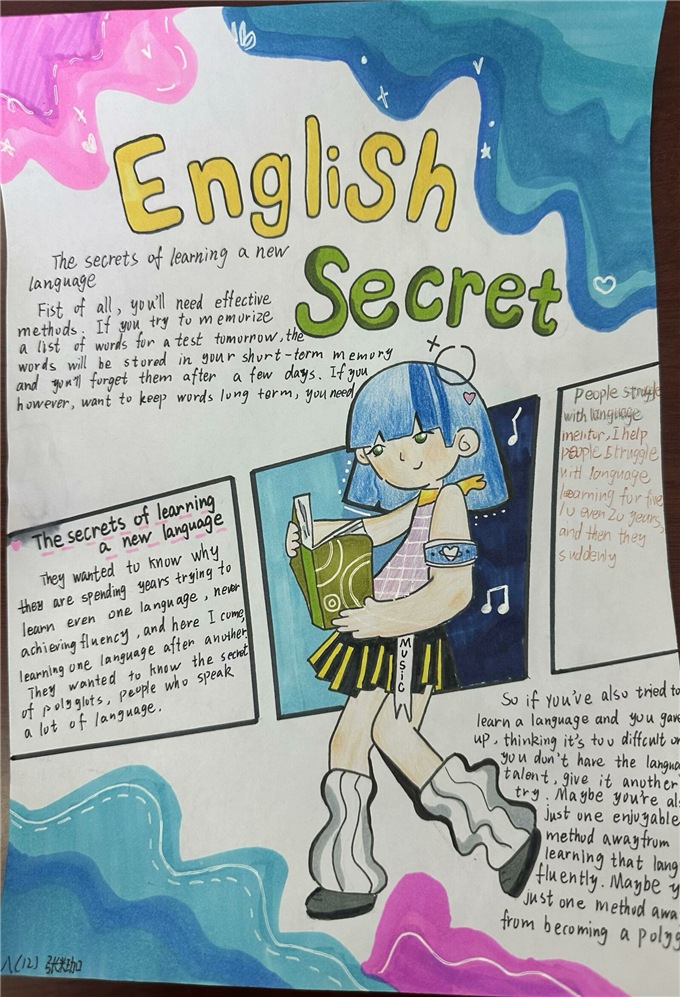 English
Secret
The secrets of learning a new
language
Fist of all, you'll need effective
methods. If you try to memorize
a list of words for a test tomorrow, the
words will be stored in your short-term memory
and you'll forget them after a few days. If you
however, want to keep words long term, you need
The secrets of learning
a new language
They wanted to know why
they are spending years trying to
learn even one language, never
achieving fluency, and here I come,
learning one language after another.
They wanted to know the secret
of polyglots, people who speak
a lot of language.
MUSIC
People struggle
with language
mentor, I help
people struggle
with language
learning for five
10 even 20 years,
and then they
suddenly
So if you've also tried to
learn a language and you gave
up, thinking it's too diffcult or
you don't have the langua
talent, give it another
try. Maybe you're als
just one enjoyable
method awayfrom
learning that lang
fluently. Maybe y
just one method awa
from becoming a polyg
八(12)